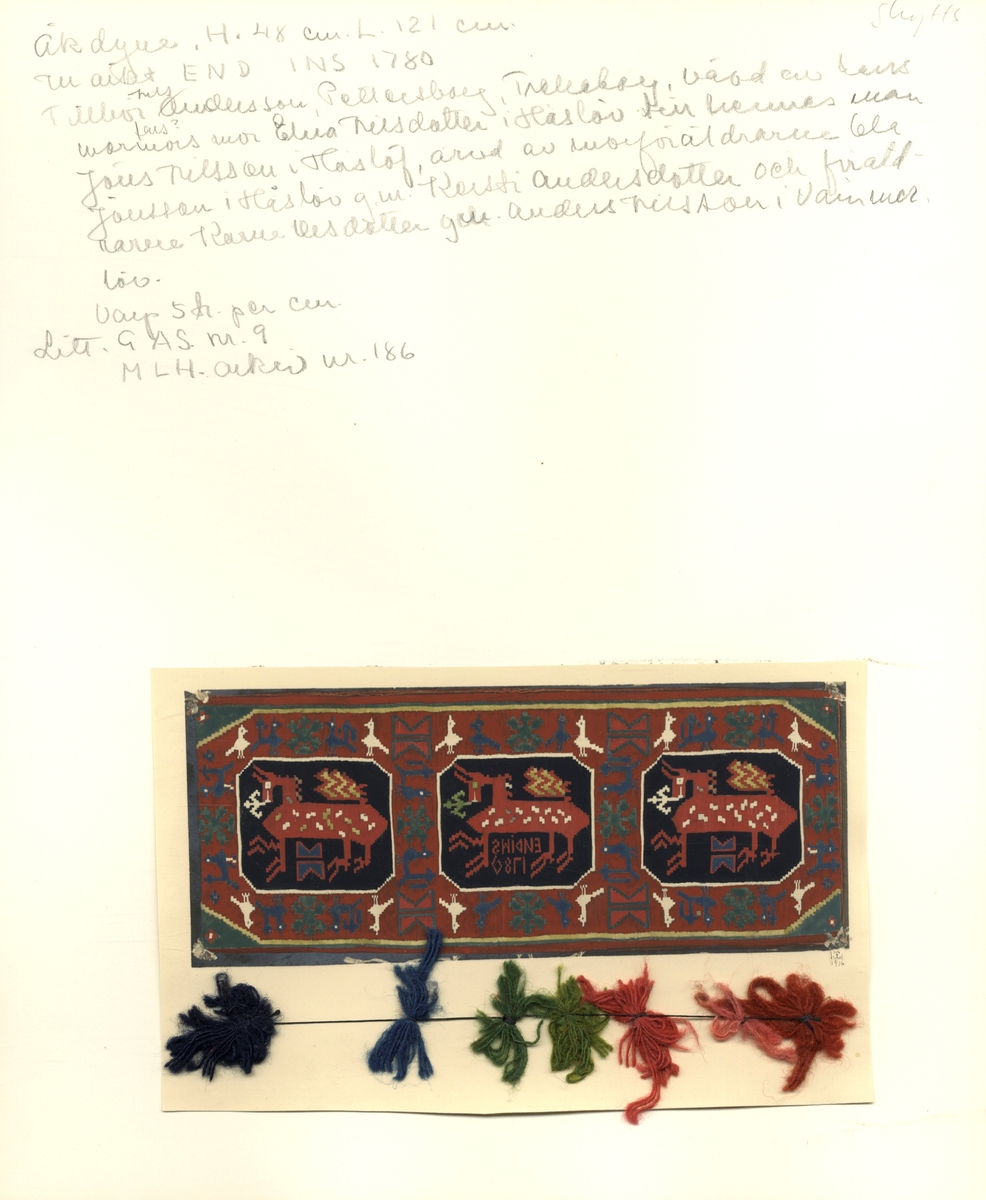 Skytts
Åkdyna, H. 48 cm. L. 121 cm.
märkt END INS 1780
Tillhör Nils Andersson, Pettersborg, Trelleborg, vävd av hans
fars?
mormors mor Elna Nilsdotter i Håslöv till hennes man
Jöns Nilsson i Håslöf, ärvd av morföräldrarne Ola
Jönsson i Håslöv g.m. Kersti Andersdotter och föräld-
rarne Karna Olsdotter g.m. Anders Nilsson i Vämmer-
löv.
Varp 5 tr. per cm.
Litt. G A S. nr. 9
M L H. arkiv nr. 186
ENDIНS
1780